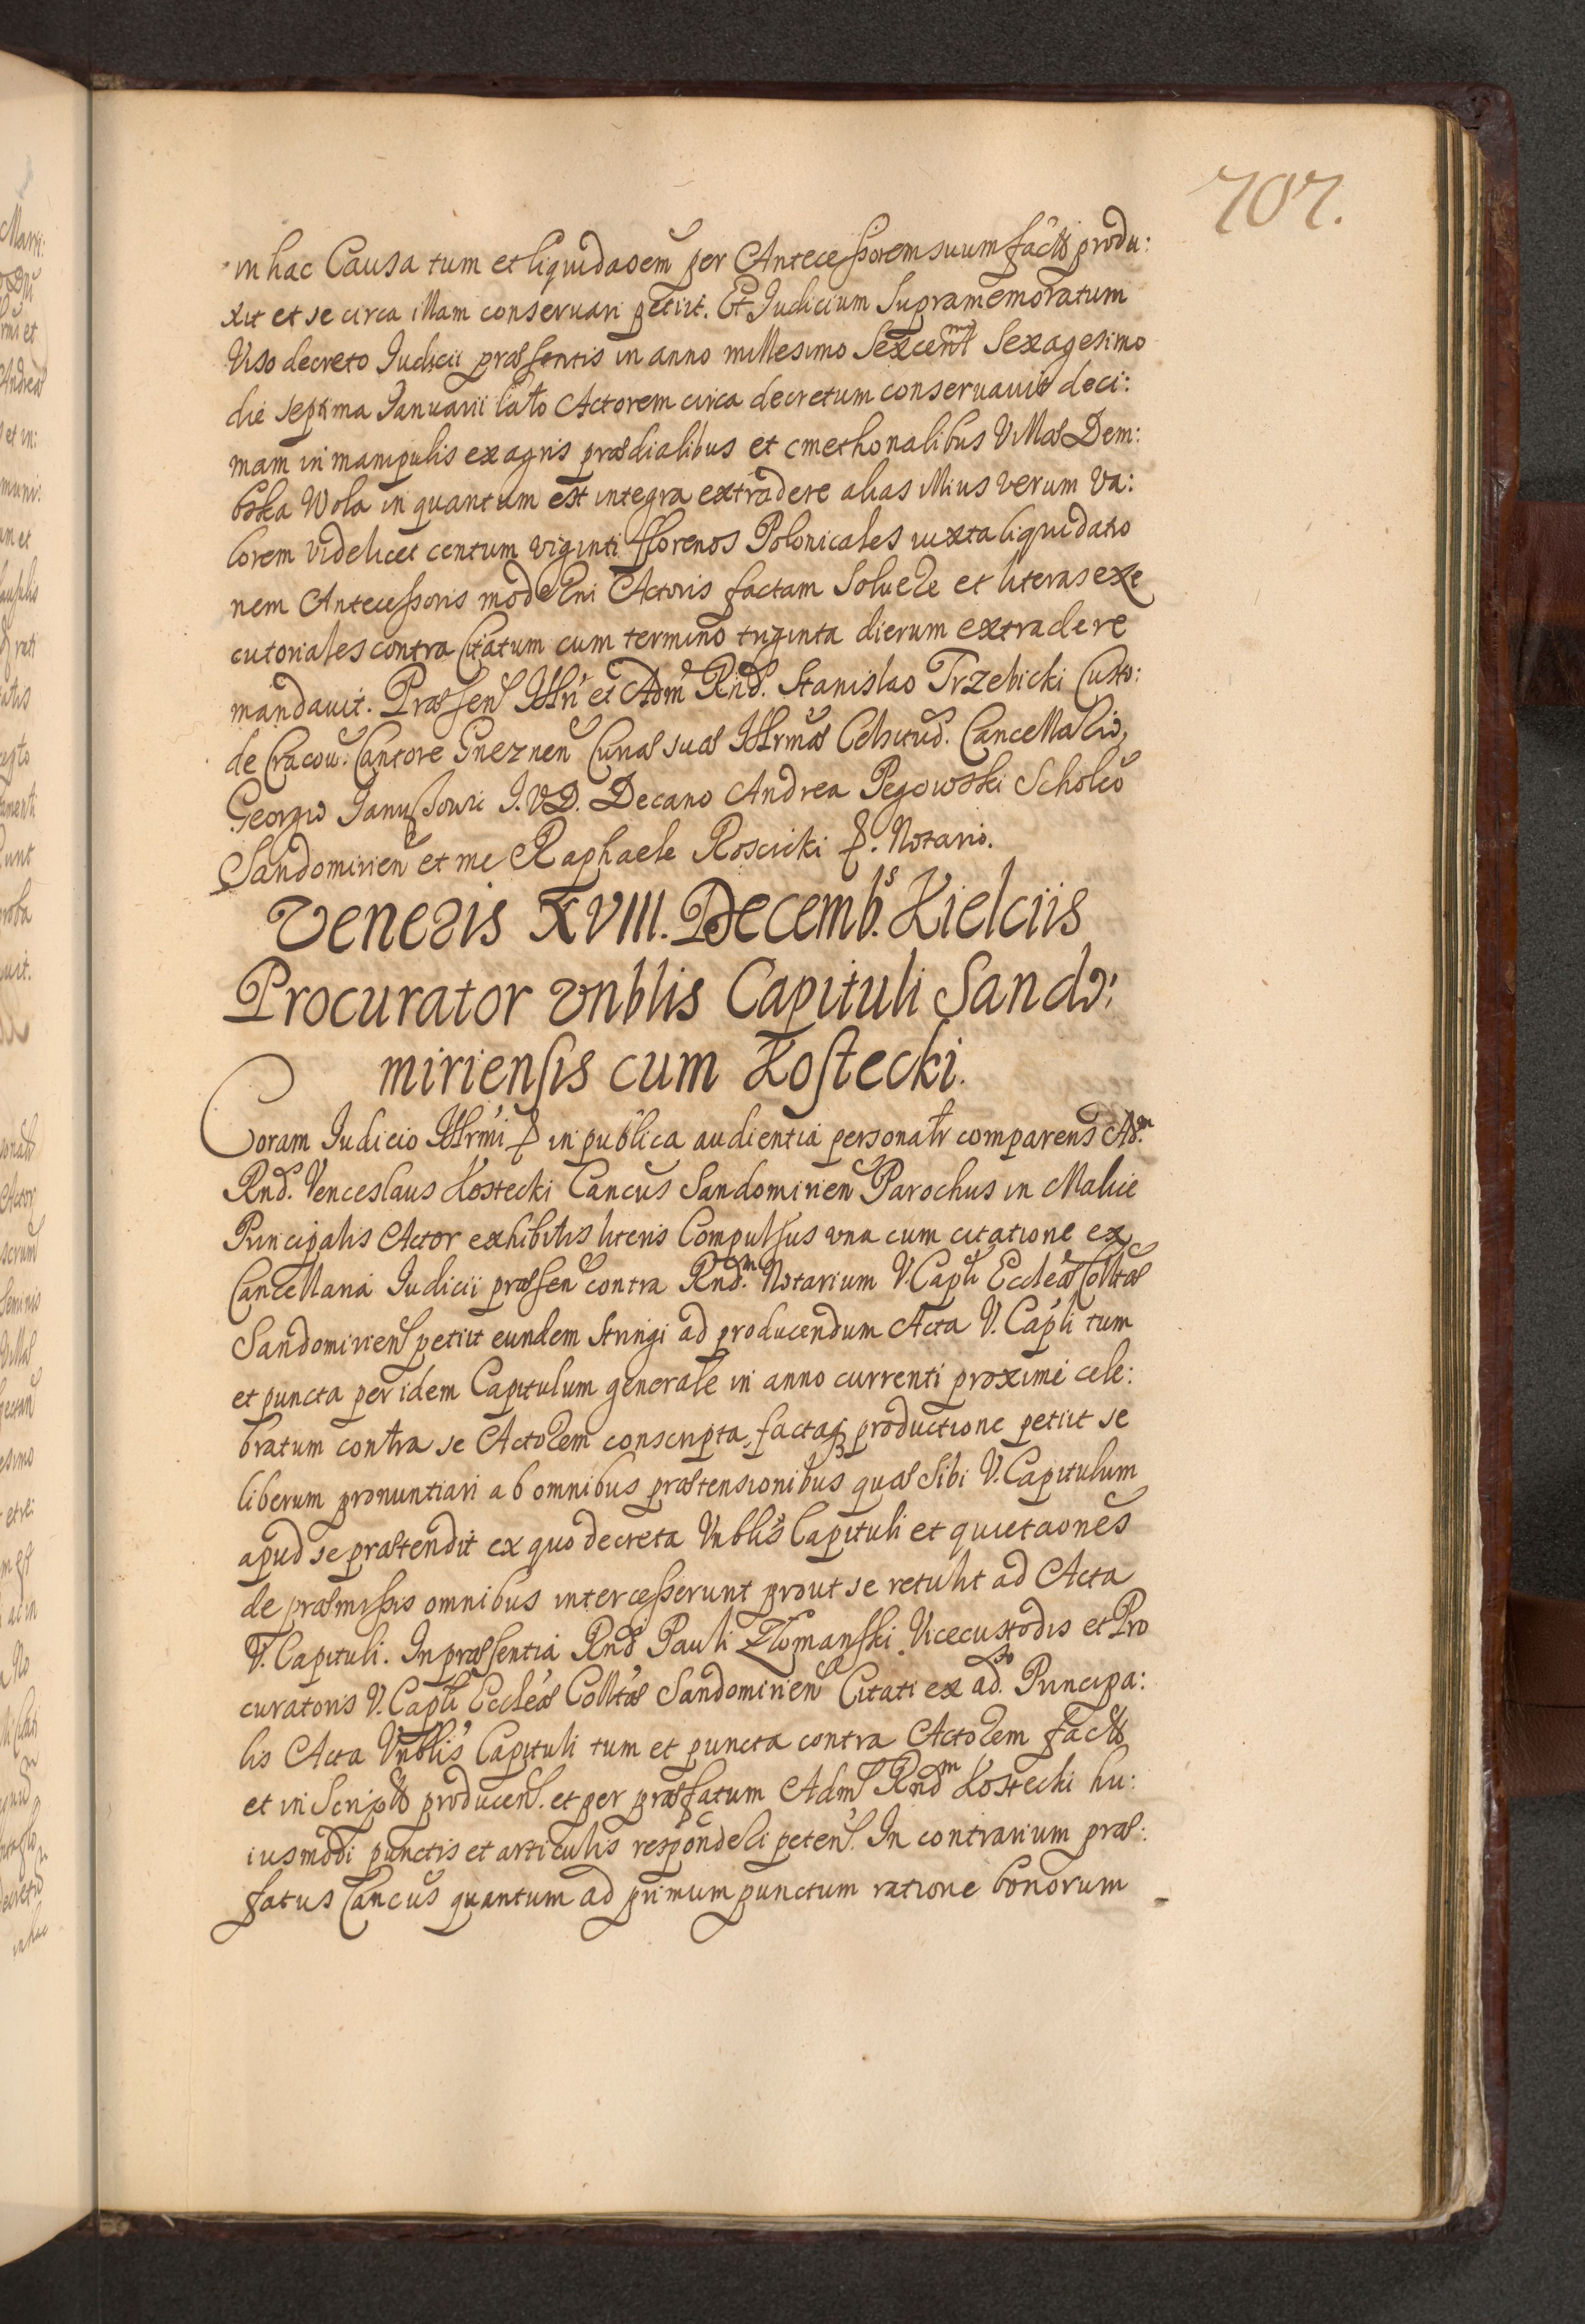 707.
in hac Causa tum et liquidaōem per Antecessorem suum factā produ:
xit et se circa illam conservari petiit. Et Judicium Supramemoratum
Viso decreto Judicii præsentis in anno millesimo Sexcenmō Sexagesimo
die septima Januarii lato Actorem circa decretum conservavit deci:
mam in manipulis ex agris prædialibus et cmethonalibus Villæ Dem:
bska Wola in quantum est integra extradere alias illius verum va:
lorem videlicet centum viginti florenos Polonicales iuxta liquidatio
nem Antecessoris moderni Actoris factam Solvere et literas exe
cutoriales contra Citatum cum termino triginta dierum extradere
mandavit. Præsen Illri et Adm Rnd. Stanislao Trzebicki Custo:
de Cracov. Cantore Gneznen Curiæ suæ Illrmæ Celsitud. Cancellario,
Georgio Janussowic J.V.D. Decano Andrea Pegowski Scholco
Sandomirien et me Raphaele Roscicki &. Notario.
Veneris XVIII. Decembs. Kielciis
Procurator Vnblis Capituli Sando:
miriensis cum Kostecki.
Coram Judicio Illrmi & in publica audientia personalr comparens Adm
Rnd. Venceslaus Kostecki Cancus Sandomirien Parochus in Malice
Principalis Actor exhibitis literis Compulsus una cum citatione ex
Cancellaria Judicii præsen contra Rndm. Notarium V. Capli Eccleæ Colltæ
Sandomirien petiit eundem stringi ad producendum Acta V. Capli tum
et puncta per idem Capitulum generale in anno currenti proxime cele:
bratum contra se Actorem conscripta, factaq productione petiit se
liberum pronuntiari ab omnibus prætensionibus quas Sibi V. Capitulum
apud se prætendit ex quo decreta Vnblis Capituli et quietaones
de præmissis omnibus intercesserunt prout se retulit ad Acta
V. Capituli. In præsentia Rnd Pauli Zlomanski Vicecustodis et Pro
curatoris V. Capli Eccleæ Colltæ Sandomirien Citati ex adso. Principa:
lis Acta Vnblis Capituli tum et puncta contra Actorem facta
et in Scriptis producen. et per præfatum Adm Rndm Kostecki hu:
iusmodi punctis et articulis responderi peten. In contrarium præ:
fatus Cancus quantum ad primum punctum ratione bonorum